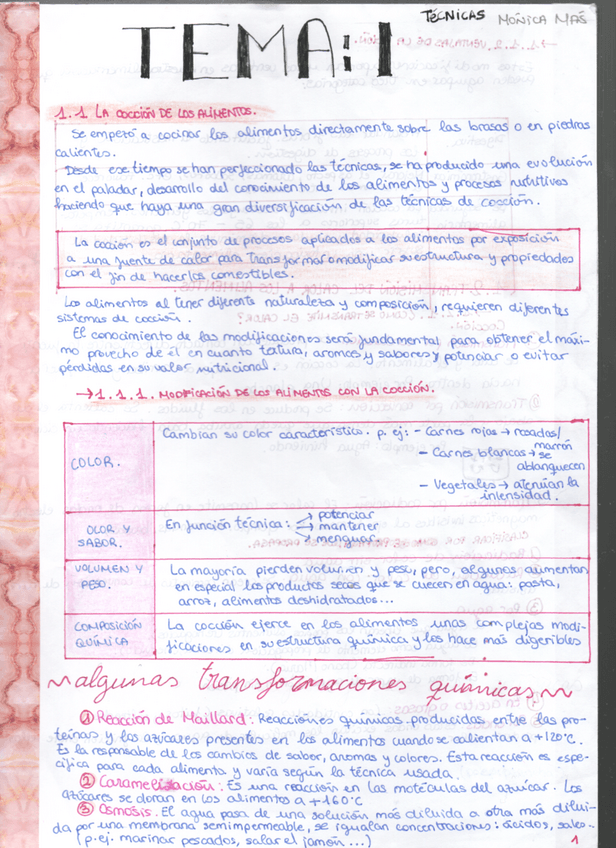 TÉCNICAS MÓNICA MAS
TEMA:1
1.1 LA COCCIÓN DE LOS ALIMENTOS.
Se empezó a cocinar los alimentos directamente sobre las brasas o en piedras
calientes.
Desde ese tiempo se han perfeccionado las técnicas, se ha producido una evolución
en el paladar, desarrollo del conocimiento de los alimentos y procesos nutritivos
haciendo que haya una gran diversificación de las técnicas de cocción.
La cocción es el conjunto de procesos aplicados a los alimentos por exposición
a una fuente de calor para transformar o modificar su estructura y propiedades
con el fin de hacerlos comestibles.
Los alimentos al tener diferente naturaleza y composición, requieren diferentes
sistemas de cocción.
El conocimiento de las modificaciones será fundamental para obtener el máxi-
mo provecho de él en cuanto textura, aromas y sabores y potenciar o evitar
pérdidas en su valor nutricional.
→1.1.1. MODIFICACIÓN DE LOS ALIMENTOS CON LA COCCIÓN.
COLOR.
Cambian su color característico. p. ej: - Carnes rojas → rosadas/
marrón
- Carnes blancas → se
ablanquecen
- Vegetales → atenúan la
intensidad.
OLOR Y
SABOR.
En función técnica: → potenciar
→ mantener
→ menguar
VOLUMEN Y
PESO.
La mayoría pierden volumen y peso, pero, algunos aumentan
en especial los productos secos que se cuecen en agua: pasta,
arroz, alimentos deshidratados...
COMPOSICIÓN
QUÍMICA
La cocción ejerce en los alimentos unas complejas modi-
ficaciones en su estructura química y los hace más digeribles
~algunas transformaciones químicas~
① Reacción de Maillard: Reacciones químicas producidas entre las pro-
teínas y los azúcares presentes en los alimentos cuando se calientan a +120°C.
Es la responsable de los cambios de sabor, aromas y colores. Esta reacción es espe-
cífica para cada alimento y varía según la técnica usada.
② Caramelización: Es una reacción en las moléculas del azúcar. Los
azúcares se doran en los alimentos a +160°C
③ Osmosis. El agua pasa de una solución más diluida a otra más dilui-
da por una membrana semipermeable, se igualan concentraciones: ácidos, sales..
(p.ej. marinar pescados, salar el jamón...)
1